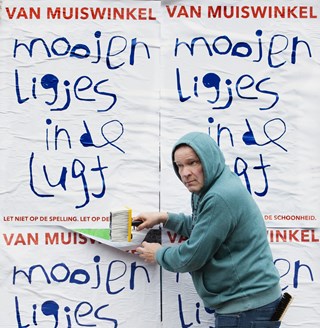 VAN MUISWINKEL
moojen
ligjes
in de
lugt
LET NIET OP DE SPELLING. LET OP DE
VAN MUISWINKEL
moojen
ligjes
in de
DE SCHOONHEID.
VAN MUISWINKEL
moojen
ligjes
VAN MUISWINKEL